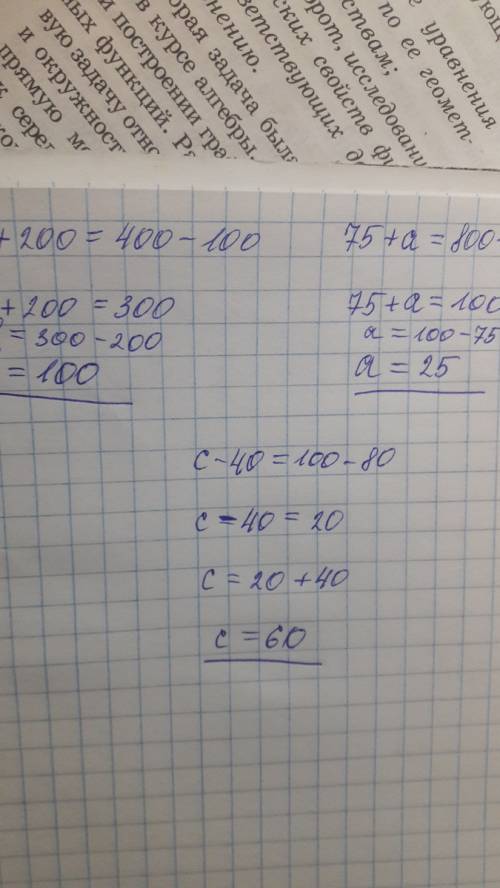 уравнения
ствам;
по ее геомет-
орот, исследовани
ских свойств фу
ветствующих
нению.
орая задача была
в курсе алгебры.
и построении гра
ных функций. Ря
вую задачу отно
и окружност
прямую
+ 200 = 400 - 100
75 + a = 800
+ 200 = 300
75 + a = 100
= 300 - 200
a = 100 - 75
= 100
a = 25
c - 40 = 100 - 80
c - 40 = 20
c = 20 + 40
c = 60